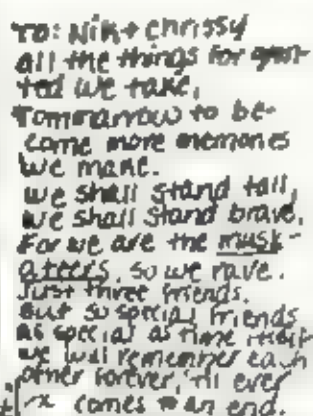 TO: Nik + Chrissy
all the things for gran-
ted we take,
Tommarrow to be-
come more memories
we make.
we shall stand tall,
we shall stand brave,
For we are the musk-
ateers, so we rave.
Just three friends.
But so special friends
as special as time itself
we will remember each
other forever, 'till ever
comes to an end.